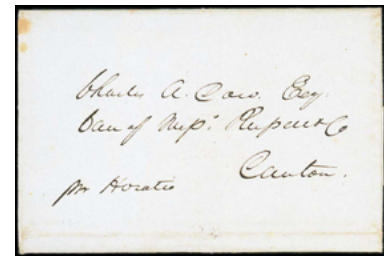 Charles A. Dow. Esq.
Care of Messrs. Russell & Co
Canton.
per Horatio